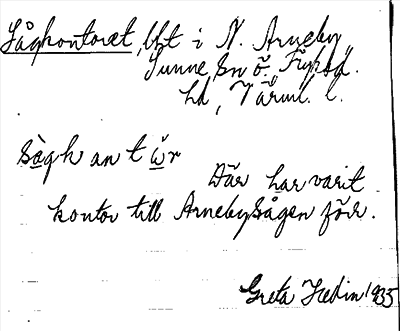 Sågkontoret, lht i N. Arneby
Sunne sn ö. Fryksd.
hd, Värml. l.
sàgkantω̆r
Där har varit
kontor till Arnebysågen förr.
Greta Hedin 1935